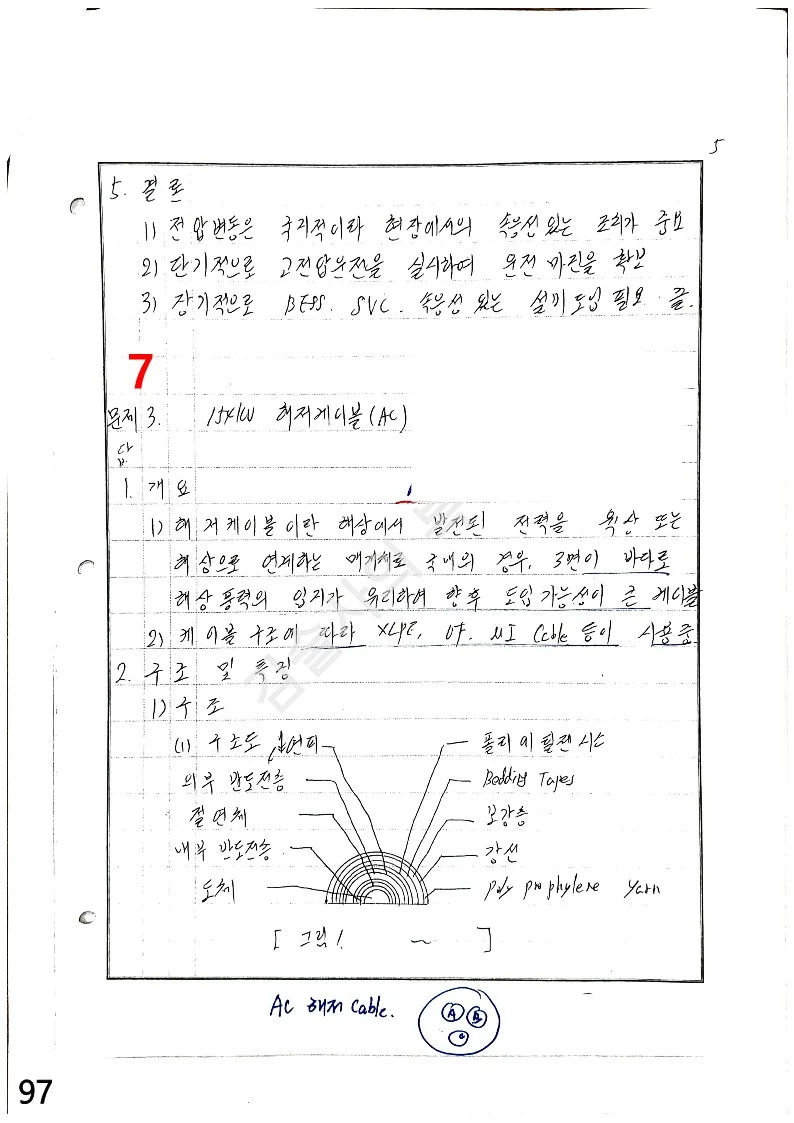 5
5. 결론
1) 전압변동은 국지적이라 현장에서의 속응성 있는 조치가 중요
2) 단기적으로 고전압운전을 실시하여 운전 마진을 확보
3) 장기적으로 BESS. SVC. 속응성 있는 설비 도입 필요. 끝.
7
문제 3. 154kV 해저케이블(AC)
답
1. 개요
1) 해저케이블이란 해상에서 발전된 전력을 육상 또는
해상으로 연계하는 매개체로 국내의 경우, 3면이 바다로
해상풍력의 입지가 유리하여 향후 도입 가능성이 큰 케이블
2) 케이블 구조에 따라 XLPE, OF. MI Cable 등이 사용중
2. 구조 및 특징
1) 구조
(1) 구조도 연피 폴리에틸렌 시스
외부 반도전층 Bedding Tapes
절연체 보강층
내부 반도전층 강선
도체 poly prophylene Yarn
[ 그림 1. ~ ]
AC 해저 Cable.
A B
97